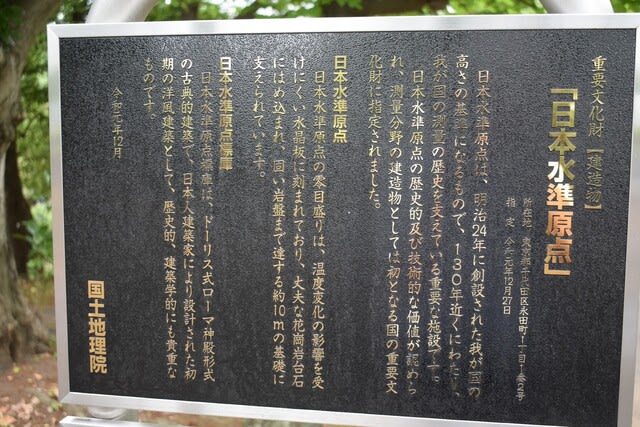 重要文化財 [建造物]
「日本水準原点」
所在地 東京都千代田区永田町1丁目1番2号
指 定 令和元年12月27日
日本水準原点は、明治24年に創設された我が国の
高さの基準になるもので、130年近くにわたり、
我が国の測量の歴史を支えている重要な施設です。
日本水準原点の歴史的及び技術的な価値が認めら
れ、測量分野の建造物としては初となる国の重要文
化財に指定されました。
日本水準原点
日本水準原点の零目盛りは、温度変化の影響を受
けにくい水晶板に刻まれており、丈夫な花崗岩台石
にはめ込まれ、固い岩盤まで達する約10mの基礎に
支えられています。
日本水準原点標庫
日本水準原点標庫は、ドーリス式ローマ神殿形式
の古典的建築で、日本人建築家により設計された初
期の洋風建築として、歴史的、建築学的にも貴重な
ものです。
令和元年12月
国土地理院